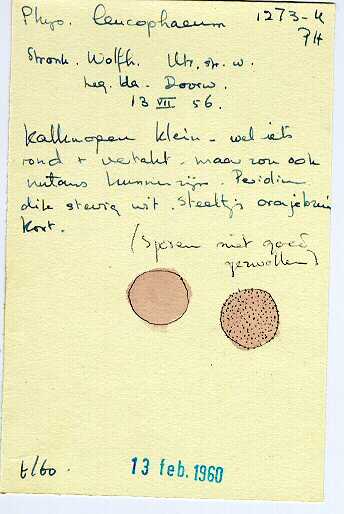 Phys. leucophaeum 1273-K
74
Stronk. Wolfh. Utr. str. w.
Leg. Ida. Doorw.
13 VII 56.
Kalkknopen klein - wel iets
rond + vertakt - maar zou ook
nutans kunnen zijn. Peridium
dik stevig wit. Steeltjes oranjebruin
kort.
(Sporen niet goed
gezwollen)
t/60. 13 feb. 1960